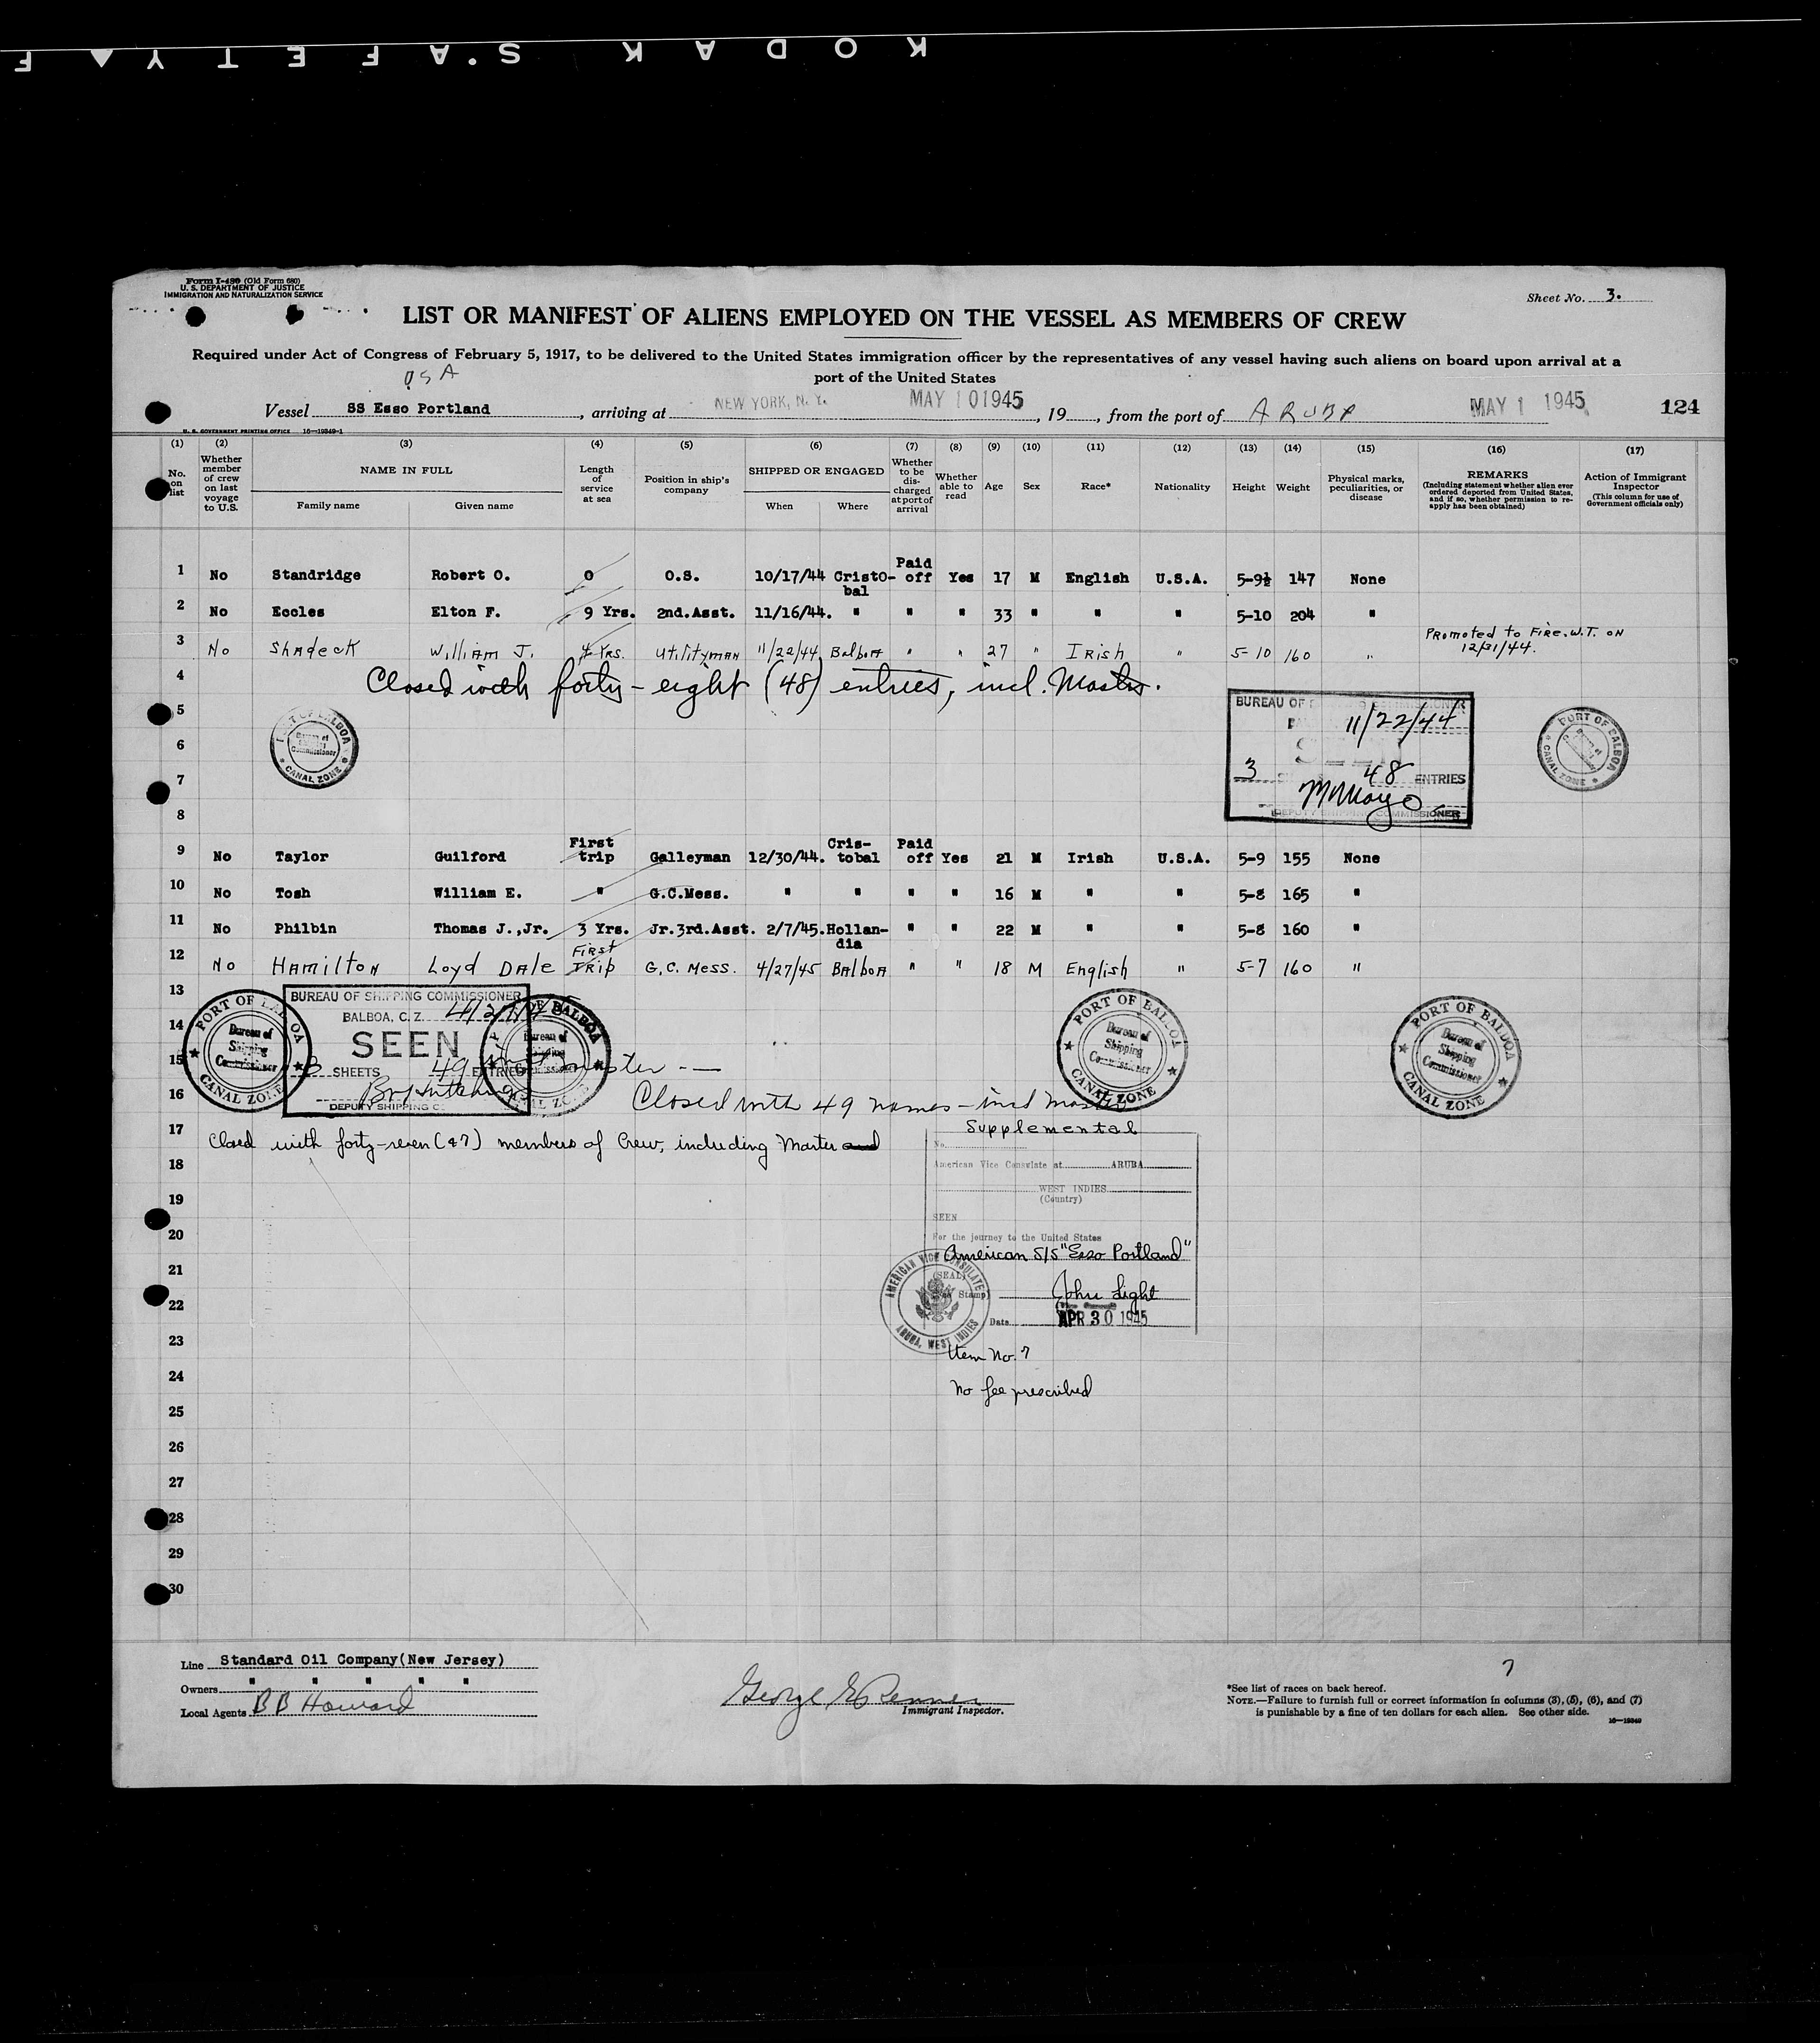 KODAK S.AFETY F
Form I-489 (Old Form 680)
U. S. DEPARTMENT OF JUSTICE
IMMIGRATION AND NATURALIZATION SERVICE
Sheet No. 3.
LIST OR MANIFEST OF ALIENS EMPLOYED ON THE VESSEL AS MEMBERS OF CREW
Required under Act of Congress of February 5, 1917, to be delivered to the United States immigration officer by the representatives of any vessel having such aliens on board upon arrival at a
port of the United States
USA
Vessel SS Esso Portland, arriving at NEW YORK, N. Y. MAY 10 1945, 19, from the port of ARUBA MAY 1 1945 124
U. S. GOVERNMENT PRINTING OFFICE 16—19349-1
(1) (2) (3) (4) (5) (6) (7) (8) (9) (10) (11) (12) (13) (14) (15) (16) (17)
No. on list
Whether member of crew on last voyage to U.S.
NAME IN FULL
Family name Given name
Length of service at sea
Position in ship's company
SHIPPED OR ENGAGED
When Where
Whether to be discharged at port of arrival
Whether able to read
Age
Sex
Race*
Nationality
Height
Weight
Physical marks, peculiarities, or disease
REMARKS
(Including statement whether alien ever ordered deported from United States, and if so, whether permission to reapply has been obtained)
Action of Immigrant Inspector
(This column for use of Government officials only)
1 No Standridge Robert O. 0 O.S. 10/17/44 Cristo-bal Paid off Yes 17 M English U.S.A. 5-9½ 147 None
2 No Eccles Elton F. 9 Yrs. 2nd.Asst. 11/16/44. " " " 33 " " " 5-10 204 "
3 No Shadeck William J. 4 Yrs. Utilityman 11/22/44 Balboa " " 27 " Irish " 5-10 160 " Promoted to Fire.W.T. on 12/31/44.
4 Closed with forty-eight (48) entries, incl. Master.
5
6
7
8
PORT OF BALBOA
Bureau of Shipping Commissioner
CANAL ZONE
BUREAU OF
11/22/44
3 48 ENTRIES
DEPUTY SHIPPING COMMISSIONER
PORT OF BALBOA
CANAL ZONE
9 No Taylor Guilford First trip Galleyman 12/30/44. Cris-tobal Paid off Yes 21 M Irish U.S.A. 5-9 155 None
10 No Tosh William E. " G.C.Mess. " " " " 16 M " " 5-8 165 "
11 No Philbin Thomas J.,Jr. 3 Yrs. Jr.3rd.Asst. 2/7/45. Hollan-dia " " 22 M " " 5-8 160 "
12 No Hamilton Loyd Dale First Trip G.C. Mess. 4/27/45 Balboa " " 18 M English " 5-7 160 "
13
14
15
16
PORT OF BALBOA
Bureau of Shipping Commissioner
CANAL ZONE
BUREAU OF SHIPPING COMMISSIONER
BALBOA, C. Z.
SEEN
3 SHEETS 49 ENTRIES
DEPUTY SHIPPING
PORT OF BALBOA
Bureau of Shipping Commissioner
CANAL ZONE
PORT OF BALBOA
Bureau of Shipping Commissioner
CANAL ZONE
PORT OF BALBOA
Bureau of Shipping Commissioner
CANAL ZONE
Closed with 49 names - incl master
17 Closed with forty-seven (47) members of Crew, including Master and
Supplemental
No.
American Vice Consulate at ARUBA
WEST INDIES
(Country)
SEEN
For the journey to the United States
American S/S "Esso Portland"
(SEAL)
Stamp
John Light
Date APR 30 1945
AMERICAN VICE CONSULATE
ARUBA, WEST INDIES
Item No. 7
No fee prescribed
18
19
20
21
22
23
24
25
26
27
28
29
30
Line Standard Oil Company(New Jersey)
Owners " " " " "
Local Agents B B Howard
Immigrant Inspector.
7
*See list of races on back hereof.
NOTE.—Failure to furnish full or correct information in columns (3), (5), (6), and (7)
is punishable by a fine of ten dollars for each alien. See other side.
16—19349